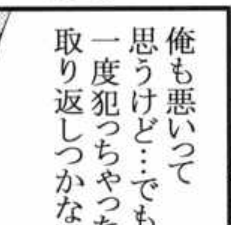 俺も悪いって
思うけど…でも
一度犯っちゃった
取り返しつかな